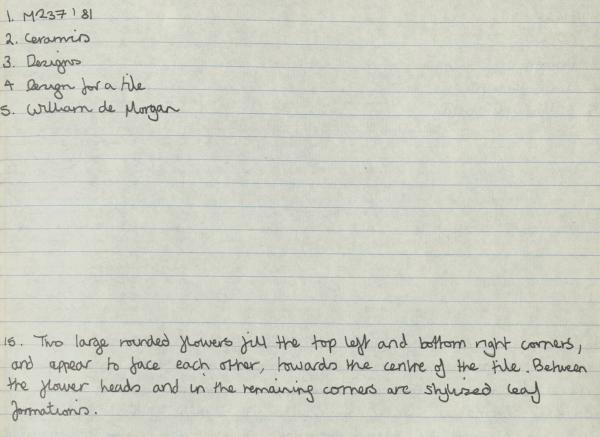 1. M237'81
2. Ceramics
3. Designs
4 Design for a tile
5. William de Morgan
15. Two large rounded flowers fill the top left and bottom right corners,
and appear to face each other, towards the centre of the tile. Between
the flower heads and in the remaining corners are stylized leaf
formations.